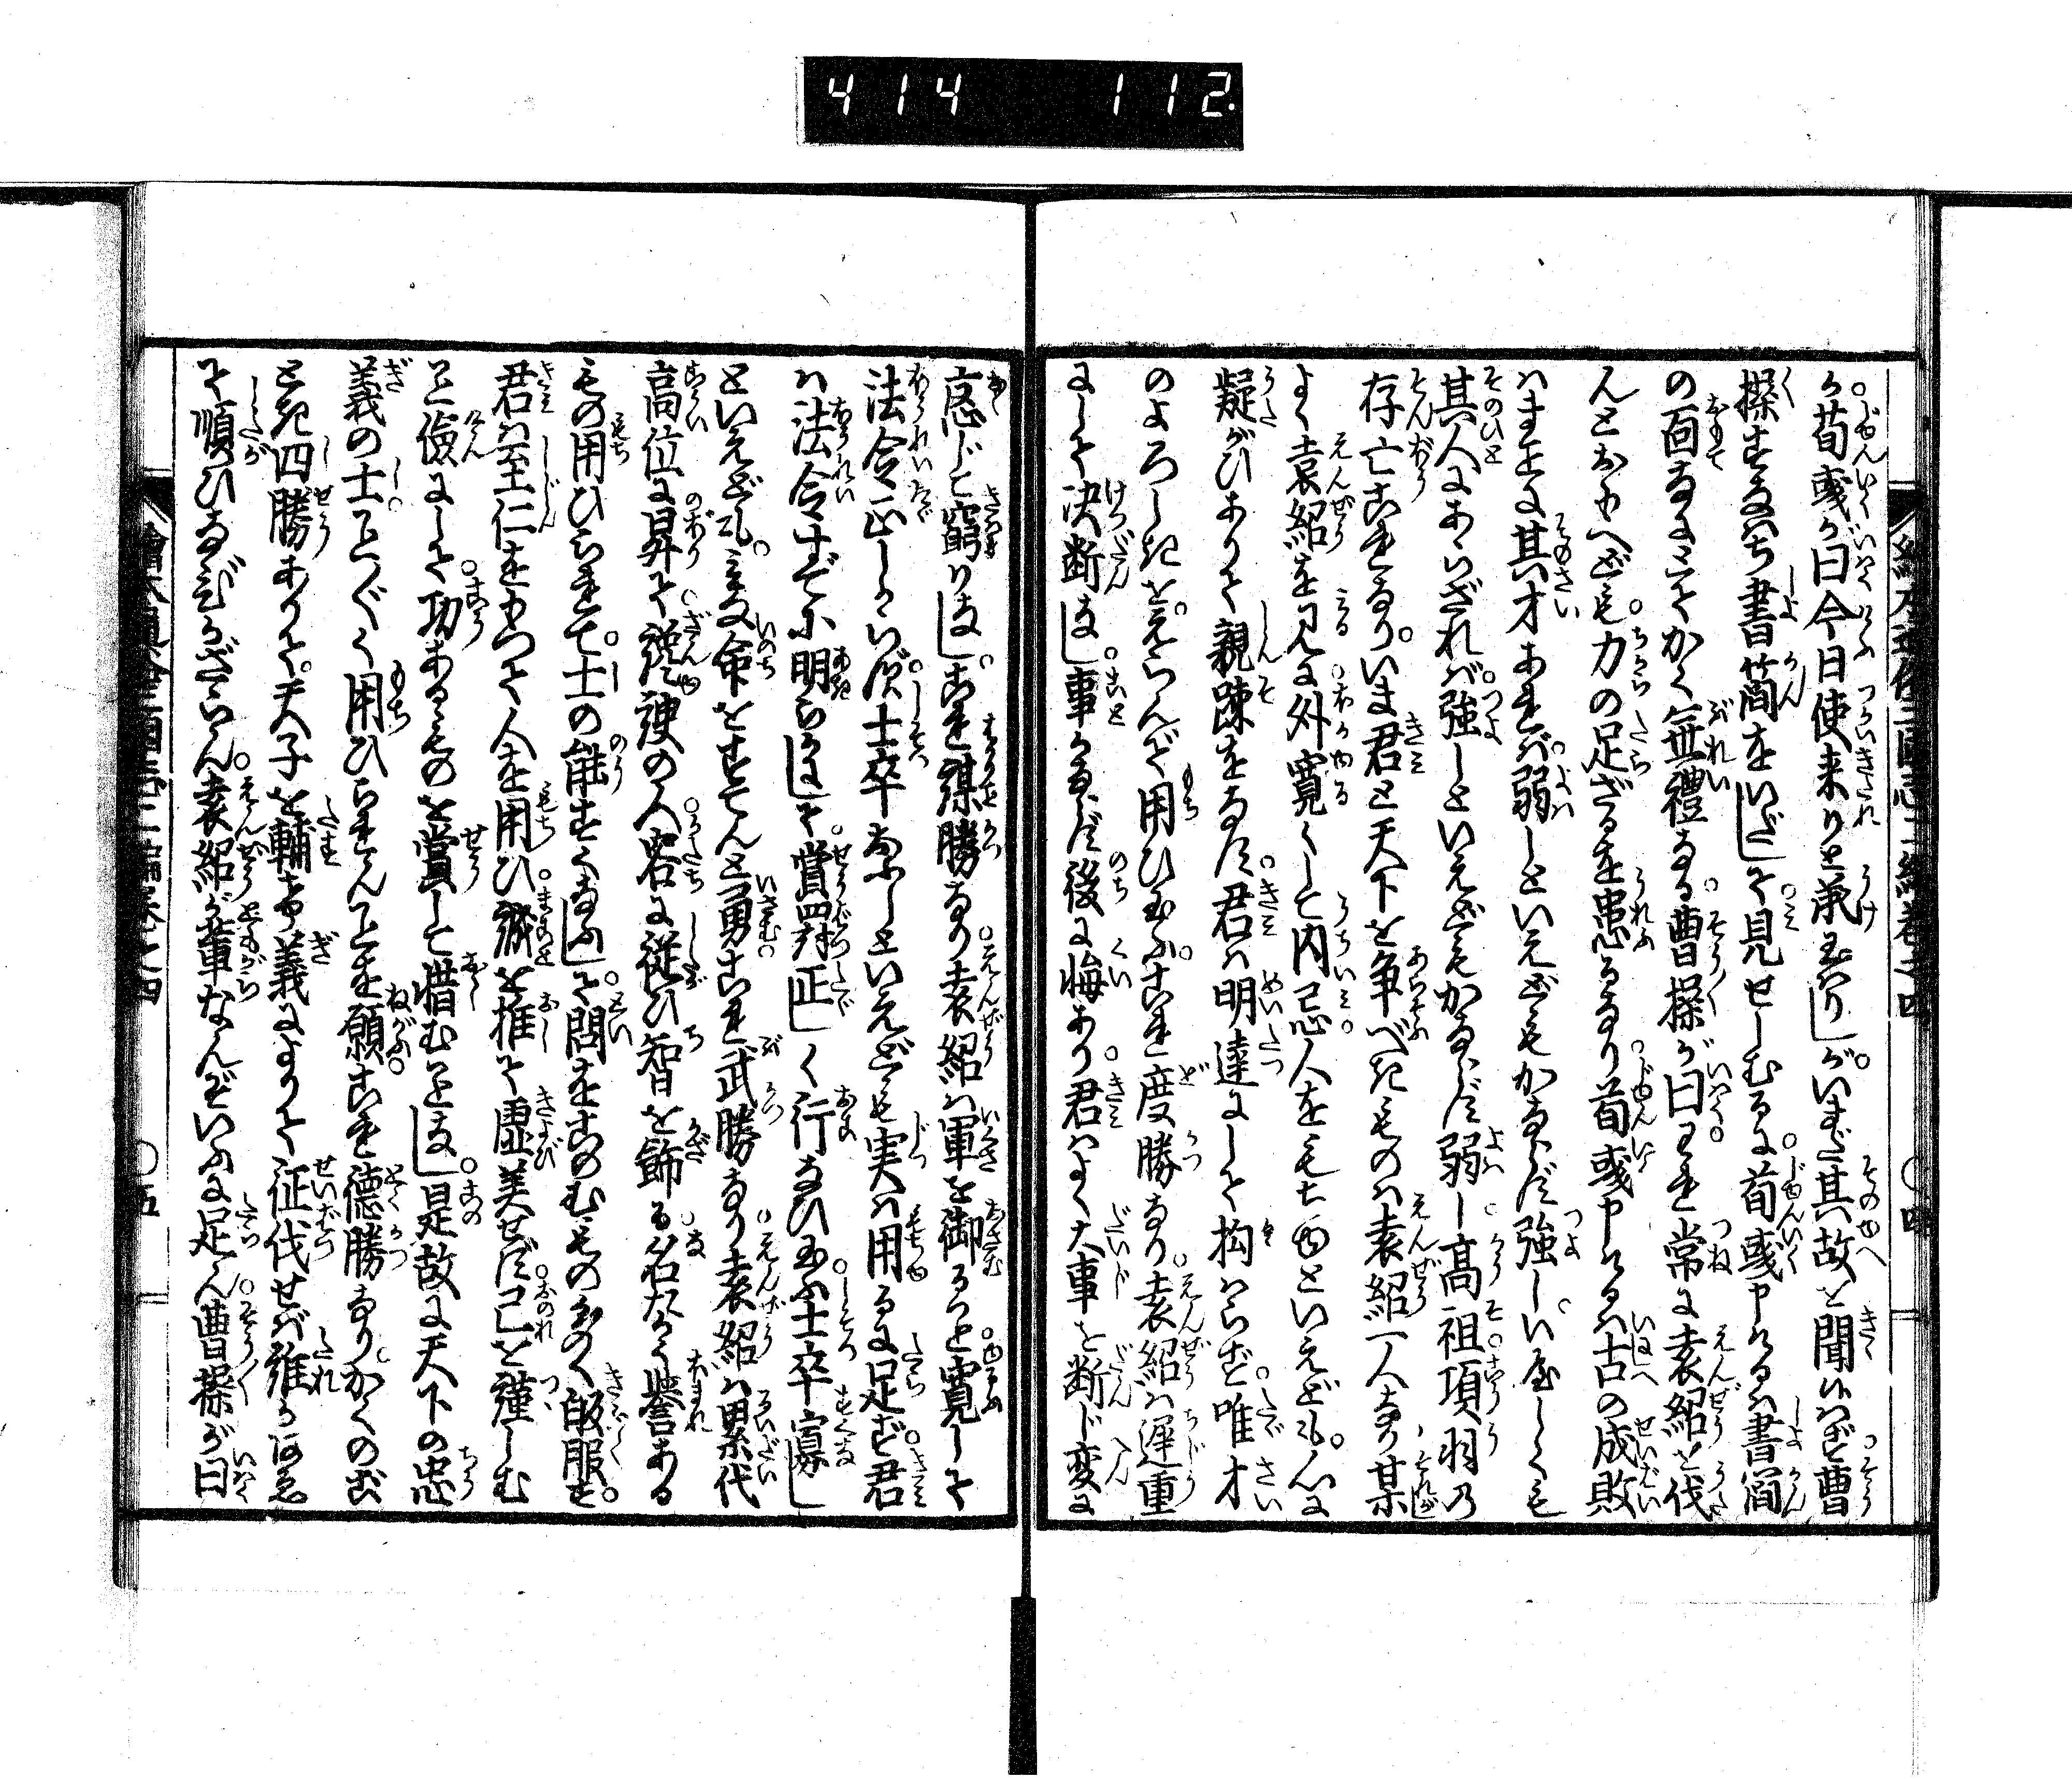 414 112
繪本通俗三國志二編巻之四 〇四
か荀彧が曰今日使来りと承玉はりしがいまだ其故を聞候はず曹
操すなはち書簡をいだして見せしむるに荀彧申けるは書簡
の面なにとてかく無禮なる曹操が曰われ常に袁紹を伐
んとおもへども力の足ざるを患るなり荀彧申けるは古の成敗
はまことに其才あれば弱しといえどもかならず強しいやしくも
其人にあらざれば強しといえどもかならず弱し高祖項羽の
存亡これなりいま君と天下を争べきものは袁紹一人なり某
よく袁紹を見るに外寛くして内忌人をもちゆといえども心に
疑がひありて親疎をなす君は明達にして拘はらず唯才
のよろしきをえらんで用ひ玉ふこれ度勝なり袁紹は遅重
にして決断しまし事かならず後に悔あり君はよく大事を断じ変に
應じて窮りましこれ謀勝なり袁紹は軍を御ること寛して
法令正しからず士卒おほしといえども実は用るに足ず君
は法令すでに明らかにして賞罰正しく行なひ玉ふ士卒寡し
といえどもみな命をすてんと勇むこれ武勝なり袁紹は累代
高位に昇て讒諛の人君に従ひ智を飾る名なく誉ある
もの用ひられて士の能すくなふして問をこのむもの多く皈服す
君は至仁をもつて人を用ひ誠を推て虚美せず己を謹しむ
こと儉にして功あるものを賞して惜むことまし是故に天下の忠
義の士ことごとく用ひられんことを願ふこれ徳勝なりかくのごと
とき四勝ありて天子を輔け義によりて征伐せば誰か何ぞ
て順ひなびかざらん袁紹が輩なんぞいふに足ん曹操が曰
繪本通俗三國志二編巻之四 〇五